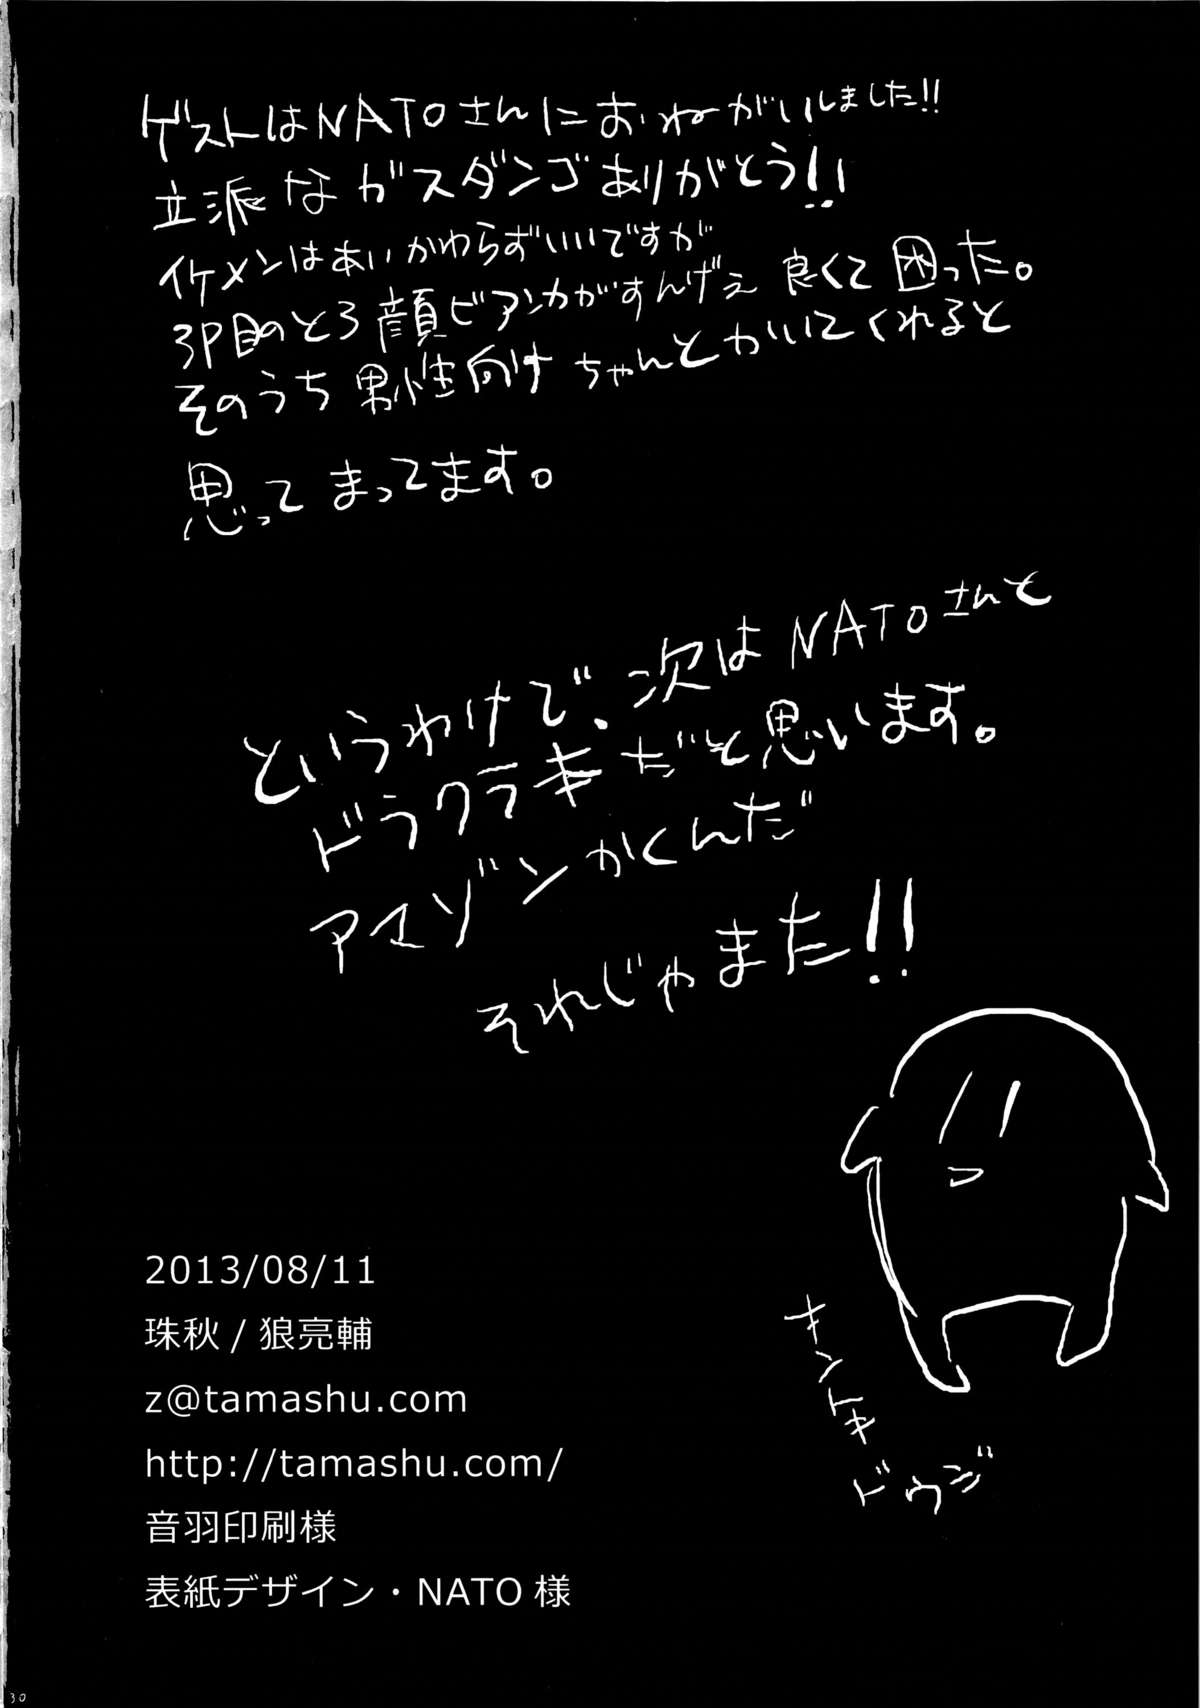 ゲストはNATOさんにおねがいしました!!
立派なガスダンゴありがとう!!
イケメンはあいかわらずいいですが
3P目のとろ顔ビアンカがすんげぇ良くて困った。
そのうち男性向けちゃんとかいてくれると
思ってまってます。
というわけで、次はNATOさんと
ドラクラキだと思います。
アマゾンかくんだ
それじゃまた!!
キントキ
ドウジ
2013/08/11
珠秋 / 狼亮輔
z@tamashu.com
http://tamashu.com/
音羽印刷様
表紙デザイン・NATO 様
30